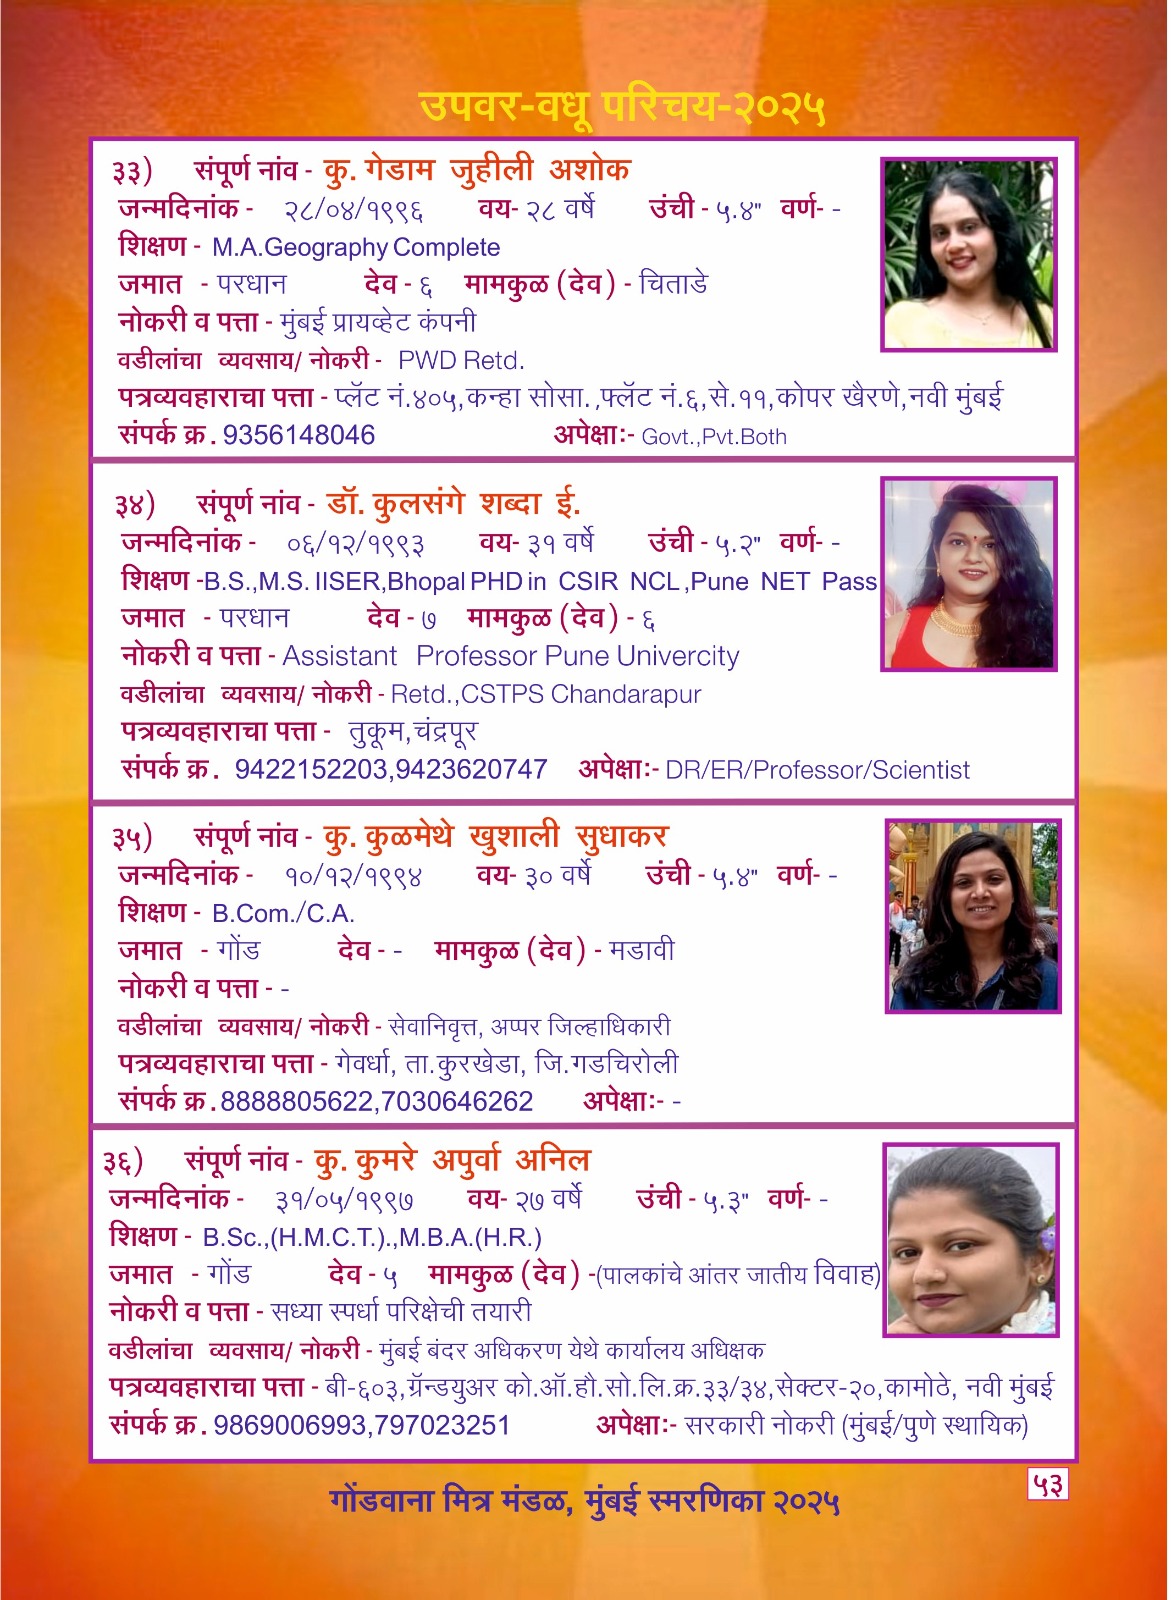 उपवर-वधू परिचय-२०२५
३३) संपूर्ण नांव - कु. गेडाम जुहीली अशोक
जन्मदिनांक - २८/०४/१९९६ वय- २८ वर्षे उंची - ५.४" वर्ण- -
शिक्षण - M.A.Geography Complete
जमात - परधान देव - ६ मामकुळ (देव) - चिताडे
नोकरी व पत्ता - मुंबई प्रायव्हेट कंपनी
वडीलांचा व्यवसाय/ नोकरी - PWD Retd.
पत्रव्यवहाराचा पत्ता - प्लॅट नं.४०५,कन्हा सोसा.,फ्लॅट नं.६,से.११,कोपर खैरणे,नवी मुंबई
संपर्क क्र. 9356148046 अपेक्षा:- Govt.,Pvt.Both
३४) संपूर्ण नांव - डॉ. कुलसंगे शब्दा ई.
जन्मदिनांक - ०६/१२/१९९३ वय- ३१ वर्षे उंची - ५.२" वर्ण- -
शिक्षण -B.S.,M.S. IISER,Bhopal PHD in CSIR NCL ,Pune NET Pass
जमात - परधान देव - ७ मामकुळ (देव) - ६
नोकरी व पत्ता - Assistant Professor Pune Univercity
वडीलांचा व्यवसाय/ नोकरी - Retd.,CSTPS Chandarapur
पत्रव्यवहाराचा पत्ता - तुकूम,चंद्रपूर
संपर्क क्र. 9422152203,9423620747 अपेक्षा:- DR/ER/Professor/Scientist
३५) संपूर्ण नांव - कु. कुळमेथे खुशाली सुधाकर
जन्मदिनांक - १०/१२/१९९४ वय- ३० वर्षे उंची - ५.४" वर्ण- -
शिक्षण - B.Com./C.A.
जमात - गोंड देव - - मामकुळ (देव) - मडावी
नोकरी व पत्ता - -
वडीलांचा व्यवसाय/ नोकरी - सेवानिवृत्त, अप्पर जिल्हाधिकारी
पत्रव्यवहाराचा पत्ता - गेवर्धा, ता.कुरखेडा, जि.गडचिरोली
संपर्क क्र. 8888805622,7030646262 अपेक्षा:- -
३६) संपूर्ण नांव - कु. कुमरे अपुर्वा अनिल
जन्मदिनांक - ३१/०५/१९९७ वय- २७ वर्षे उंची - ५.३" वर्ण- -
शिक्षण - B.Sc.,(H.M.C.T.).,M.B.A.(H.R.)
जमात - गोंड देव - ५ मामकुळ (देव) -(पालकांचे आंतर जातीय विवाह)
नोकरी व पत्ता - सध्या स्पर्धा परिक्षेची तयारी
वडीलांचा व्यवसाय/ नोकरी - मुंबई बंदर अधिकरण येथे कार्यालय अधिक्षक
पत्रव्यवहाराचा पत्ता - बी-६०३,ग्रॅन्डयुअर को.ऑ.हौ.सो.लि.क्र.३३/३४,सेक्टर-२०,कामोठे, नवी मुंबई
संपर्क क्र. 9869006993,797023251 अपेक्षा:- सरकारी नोकरी (मुंबई/पुणे स्थायिक)
५३
गोंडवाना मित्र मंडळ, मुंबई स्मरणिका २०२५